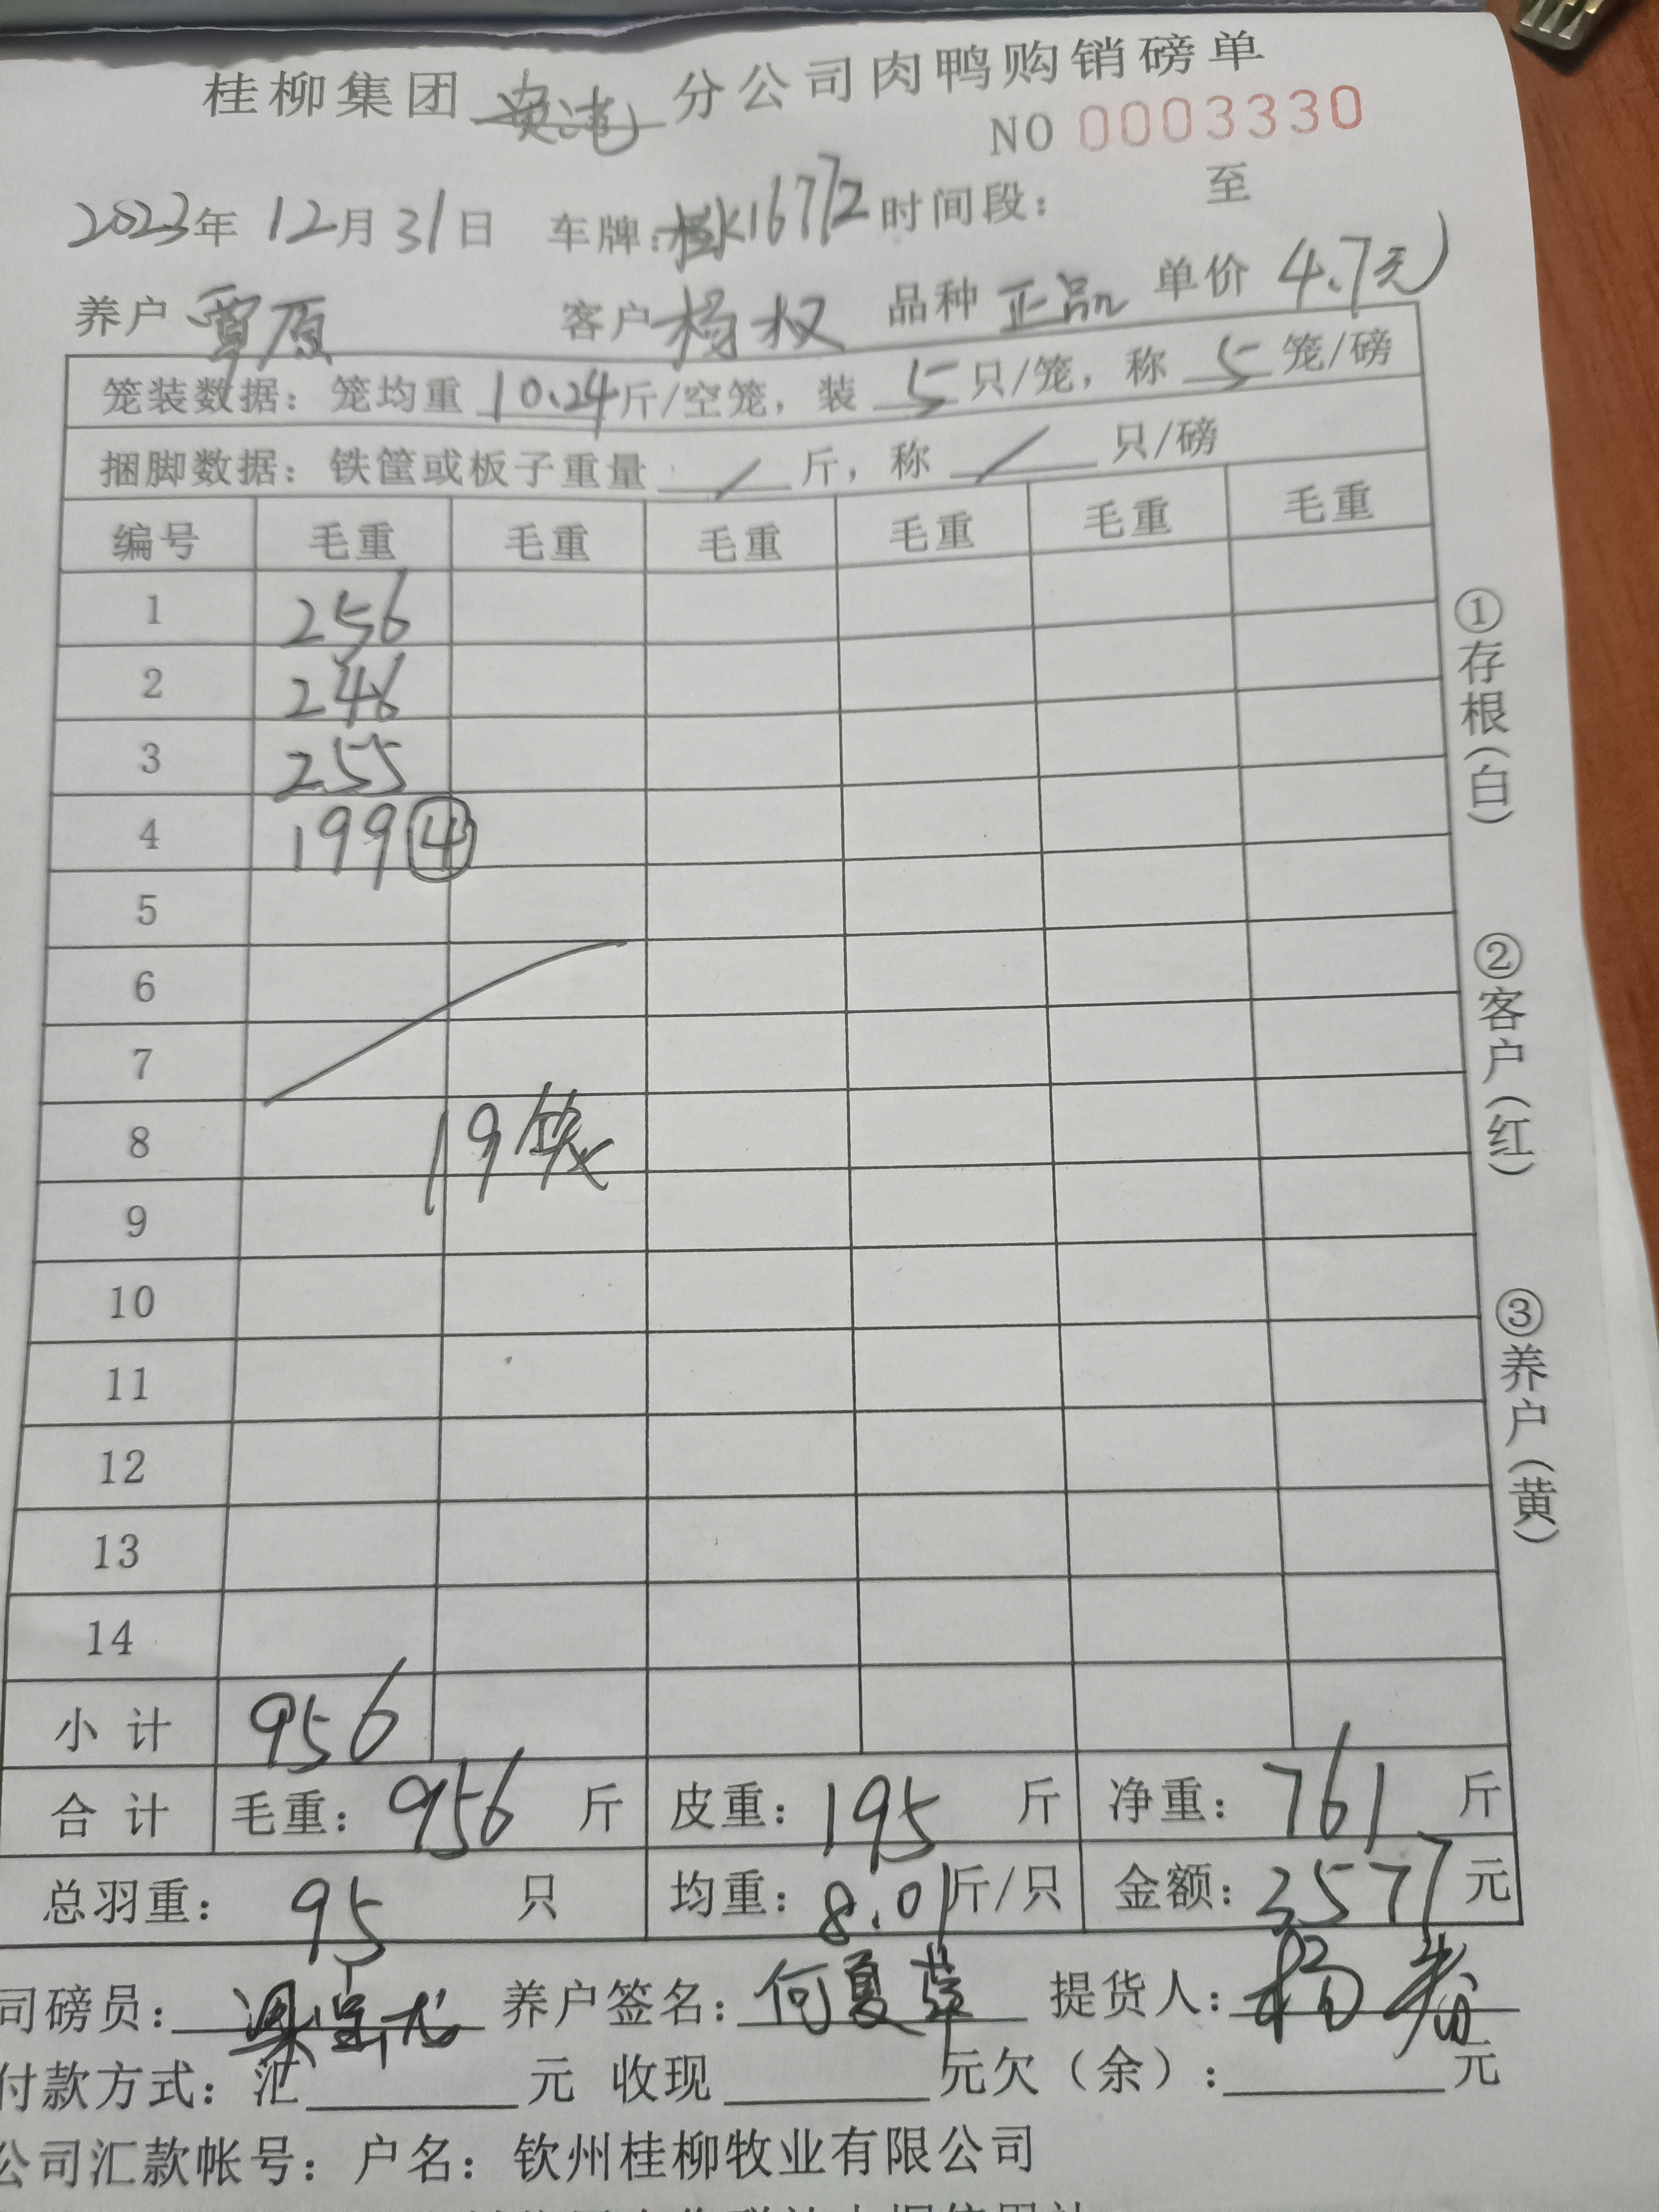 桂柳集团 分公司肉鸭购销磅单
NO 0003330
2023年 12月31日 车牌:桂K16772 时间段: 至
养户 覃原 客户 杨权 品种 正品 单价 4.7元
笼装数据: 笼均重 10.24 斤/空笼, 装 5 只/笼, 称 5 笼/磅
捆脚数据: 铁筐或板子重量 / 斤, 称 / 只/磅
编号 毛重 毛重 毛重 毛重 毛重 毛重
1 256
2 246
3 255
4 199 ④
5
6
7
8 19笼
9
10
11
12
13
14
小计 956
合计 毛重: 956 斤 皮重: 195 斤 净重: 761 斤
总羽重: 95 只 均重: 8.01 斤/只 金额: 3577 元
司磅员: 养户签名: 何夏萍 提货人: 杨
付款方式: 汇 元 收现 元欠(余): 元
公司汇款帐号: 户名: 钦州桂柳牧业有限公司
①存根(白)
②客户(红)
③养户(黄)